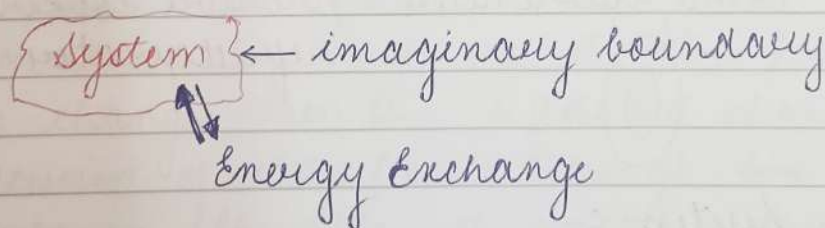 System ← imaginary boundary
Energy Exchange